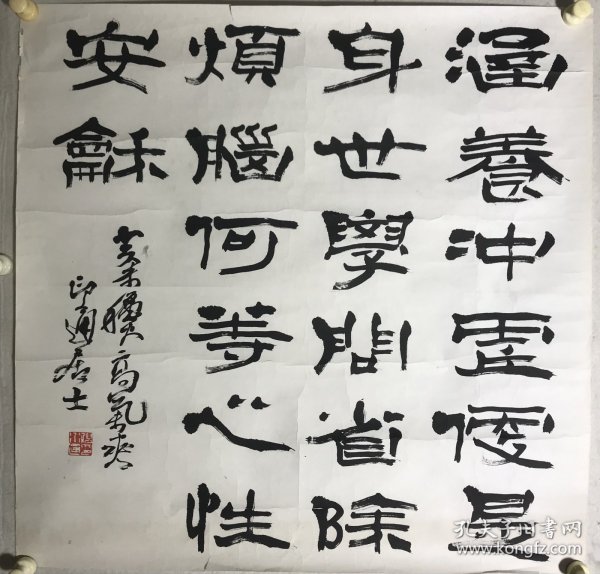 涵養冲虛便是
身世學問省除
煩腦何等心性
安龢
癸未龝高氣爽
印居士
孔夫子旧书网
www.kongfz.com